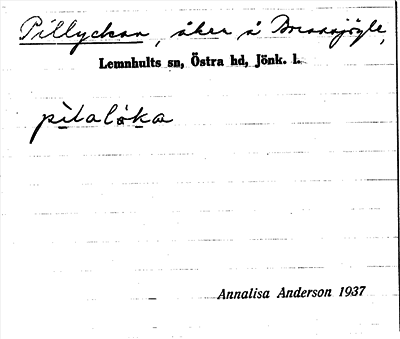 Pillyckan, åker å
Lemnhults sn, Östra hd, Jönk. l.
pìtalø̀ka
Annalisa Anderson 1937